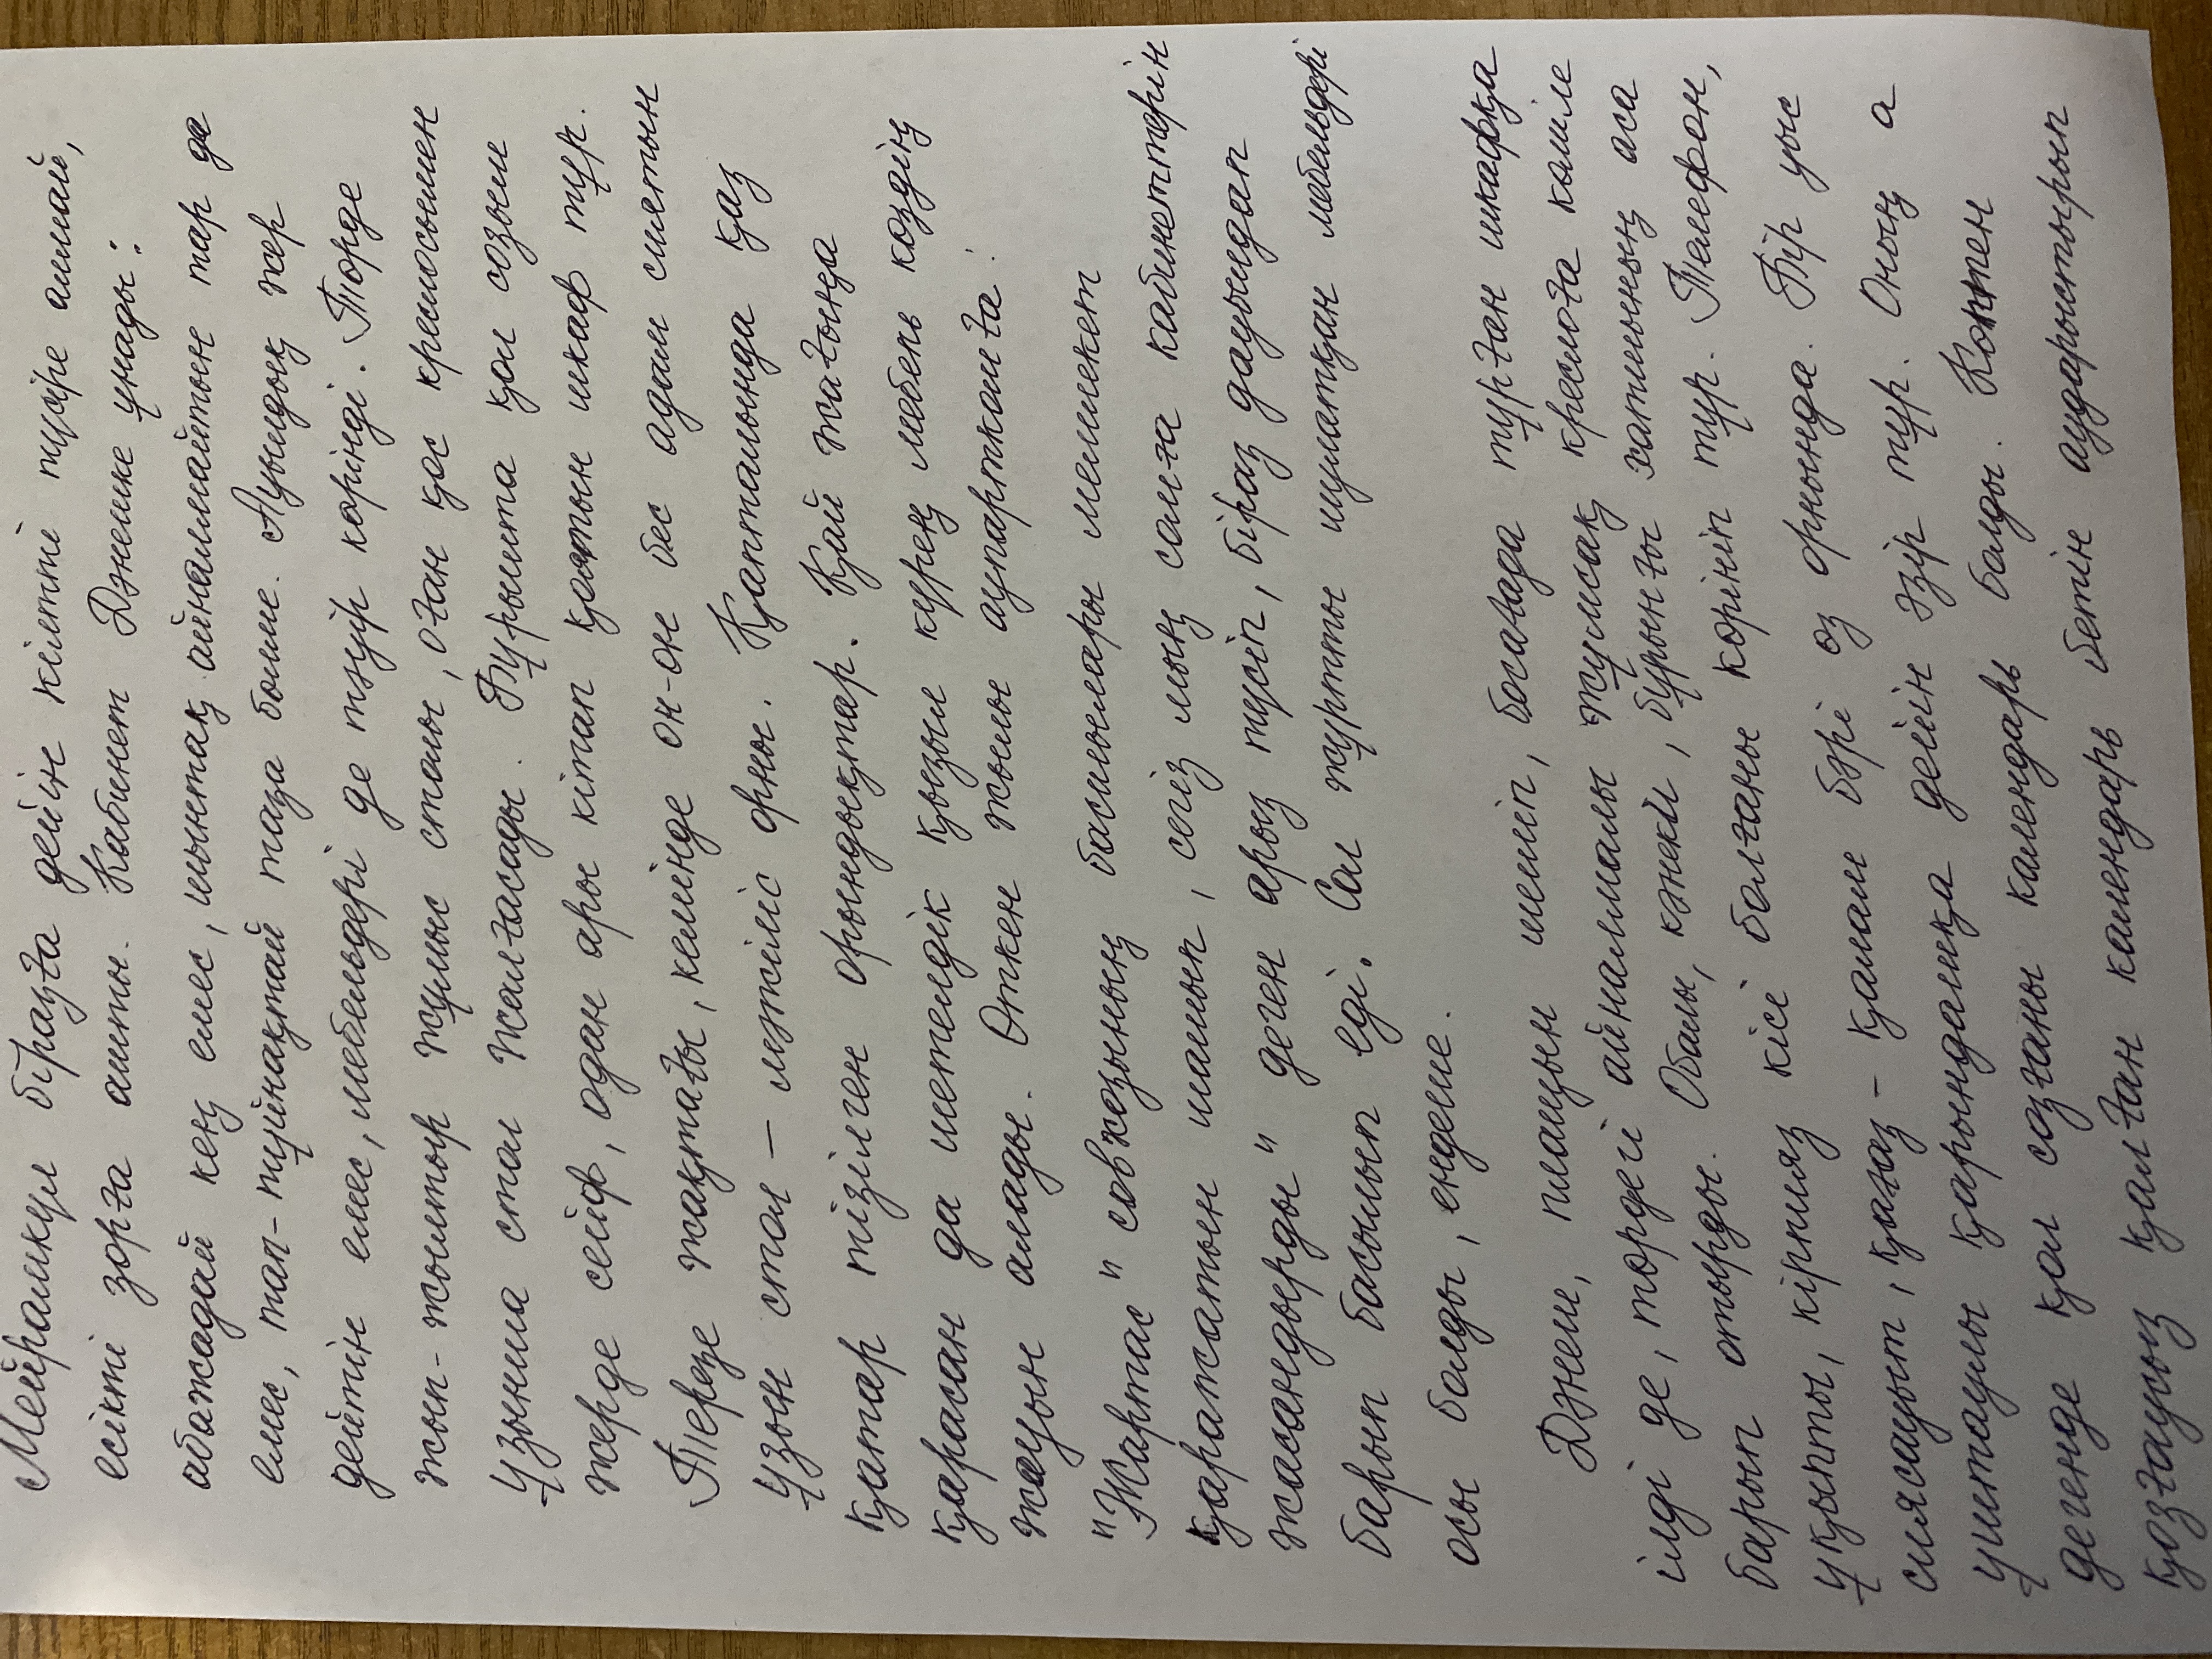 Мейрамкул біразға дейін кілтті түсіре алмай,
есікті зорға ашты. Кабинет Дәнешке ұнады:
абажадай кең емес, шынтақ айналмайтын тар да
емес, тап-тұйнақтай таза бөлме. Ауылдық жер
дейтін емес, мебельдері де тәуір көрінді. Төрде
жып-жылтыр жұмыс столы, оған қос креслосымен
ұзынша стол жалғасады. Бұрышта қол созым
жерде сейф, одан ары кітап қоятын шкаф тұр.
Терезе жақтағы, кемінде он-он бес адам сиятын
ұзын стол – мәжіліс орны. Қапталында қаз
қатар тізілген орындықтар. Қай жағыңа
қарасан да шетелдік қызыл күрең мебель көздің
жауын алады. Өткен жылы аупарткомға:
"Жартас" совхозының басшылары мемлекет
қаражатын шашып, сегіз мың сомға кабинеттерін
жасандырды" деген арыз түсіп, біраз дауылдап
барып басылып еді. Сол жұртты шулатқан мебельдері
осы болды, ендеше.
Дәнеш, плащын шешіп, босағада тұрған шкафқа
ілді де, төрдегі айналмалы жұмсақ креслоға көміле
барып отырды. Обалы, кәнеки, бұрынғы хатшының аса
ұқыпты, кірпияз кісі болғаны көрініп тұр. Телефон,
сиясауыт, қағаз-қалам бәрі өз орнында. Бір уыс
ұштаулы қарындашқа дейін әзір тұр. Оның а
дегенде қол созғаны календарь болды. Көптен
қозғаусыз қалған календарь бетін аударыстырып